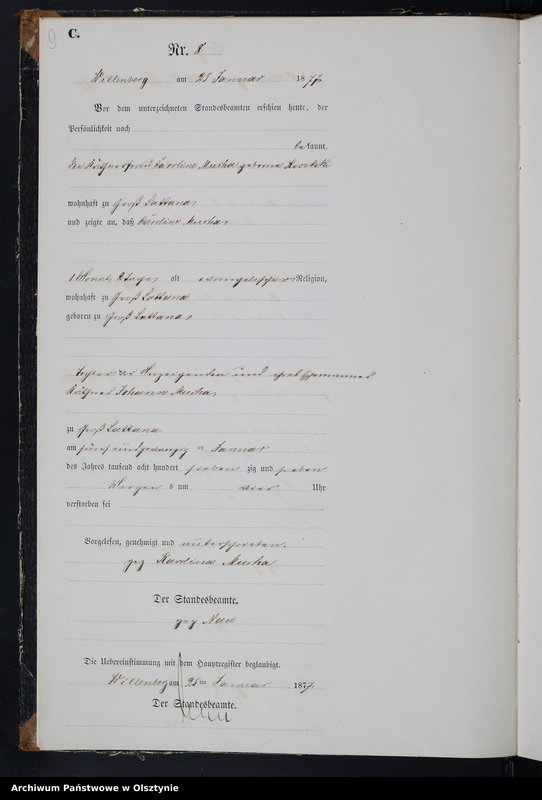 9
C.
Nr. 8
Willenberg am 25 Januar 1877
Vor dem unterzeichneten Standesbeamten erschien heute, der
Persönlichkeit nach
bekannt,
die Käthnerfrau Caroline Mucha geborene
wohnhaft zu Groß Lattana
und zeigte an, daß Karoline Mucha
1 Monat 2 Tage alt evangelischer Religion,
wohnhaft zu Groß Lattana
geboren zu Groß Lattana
Tochter der Anzeigenden und Ehemannes
Käthner Johann Mucha
zu Groß Lattana
am fünf und zwanzig ten Januar
des Jahres tausend acht hundert sieben zig und sieben
Morgens um vier Uhr
verstorben sei
Vorgelesen, genehmigt und unterschrieben.
gez Karolina Mucha
Der Standesbeamte.
gez
Die Uebereinstimmung mit dem Hauptregister beglaubigt.
Willenberg am 25 ten Januar 1877
Der Standesbeamte.
Archiwum Państwowe w Olsztynie